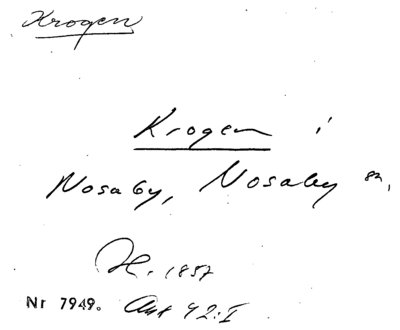 Krogen
Krogen i
Nosaby, Nosaby sn,
H. 1857
Nr 7949. Akt 42:I